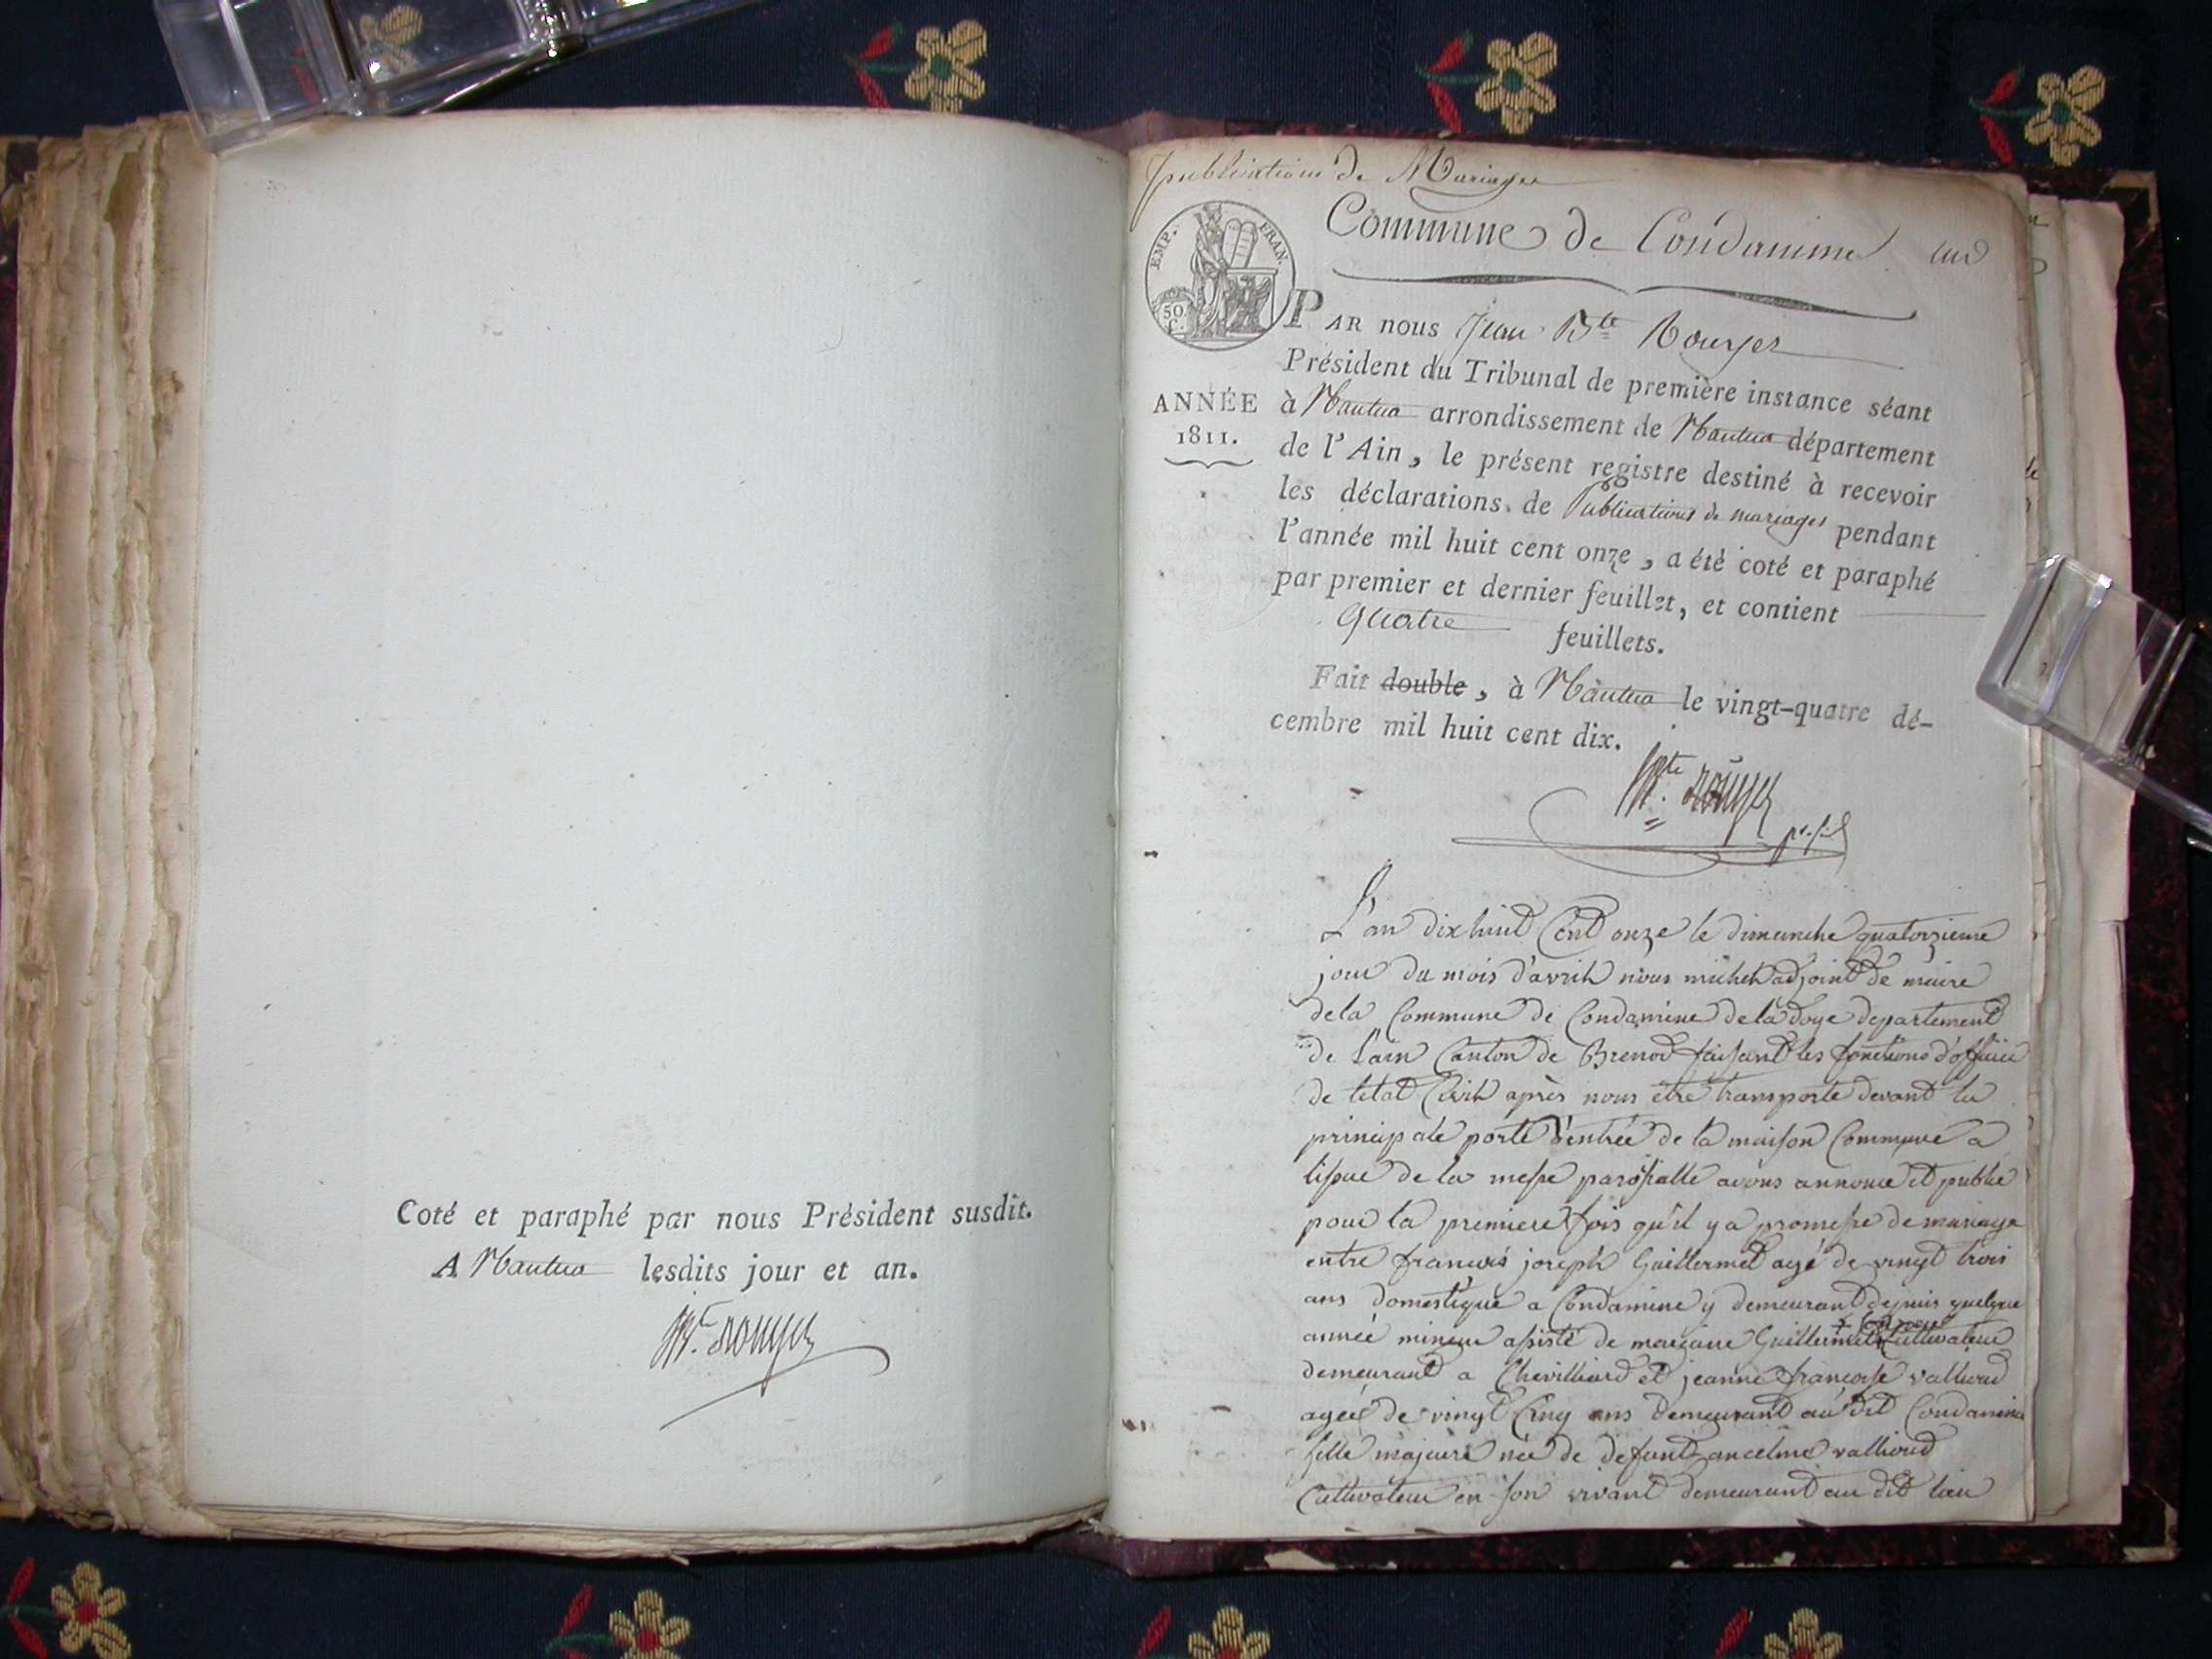 Coté et paraphé par nous Président susdit.
A Nantua lesdits jour et an.
Bte Rouyer
publications de Mariages
Commune de Condamine
EMP. FRAN.
50
C.
PAR nous Jean Bte Rouyer
Président du Tribunal de première instance séant
ANNÉE
1811.
à Nantua arrondissement de Nantua département
de l'Ain, le présent registre destiné à recevoir
les déclarations de Publications de mariages pendant
l'année mil huit cent onze, a été coté et paraphé
par premier et dernier feuillet, et contient
quatre feuillets.
Fait double, à Nantua le vingt-quatre dé-
cembre mil huit cent dix.
Bte Rouyer
L'an dix huit Cent onze le dimanche quatorzieme
jour du mois d'avril nous michel adjoint de maire
dela Commune de Condamine delàdoye departement
de Lain Canton de Brenod faisant les fonctions d'officier
de letat Civil après nous être transporté devant la
principale porte d'entrée de la maison Commune a
lissue de la messe paroissialle avons annoncé et publié
pour la premiere fois qu'il y a promesse de mariage
entre francois joseph Guillermet agé de vingt trois
ans domestique a Condamine y demeurant depuis quelque
année mineur assisté de Guillermet Cultivateur
demeurant a Chevilliard et jeanne françoise vallioud
ageé de vingt Cinq ans demeurant au dit Condamine
fille majeure née de defunt ancelme vallioud
Cultivateur en son vivant demeurant au dit lieu